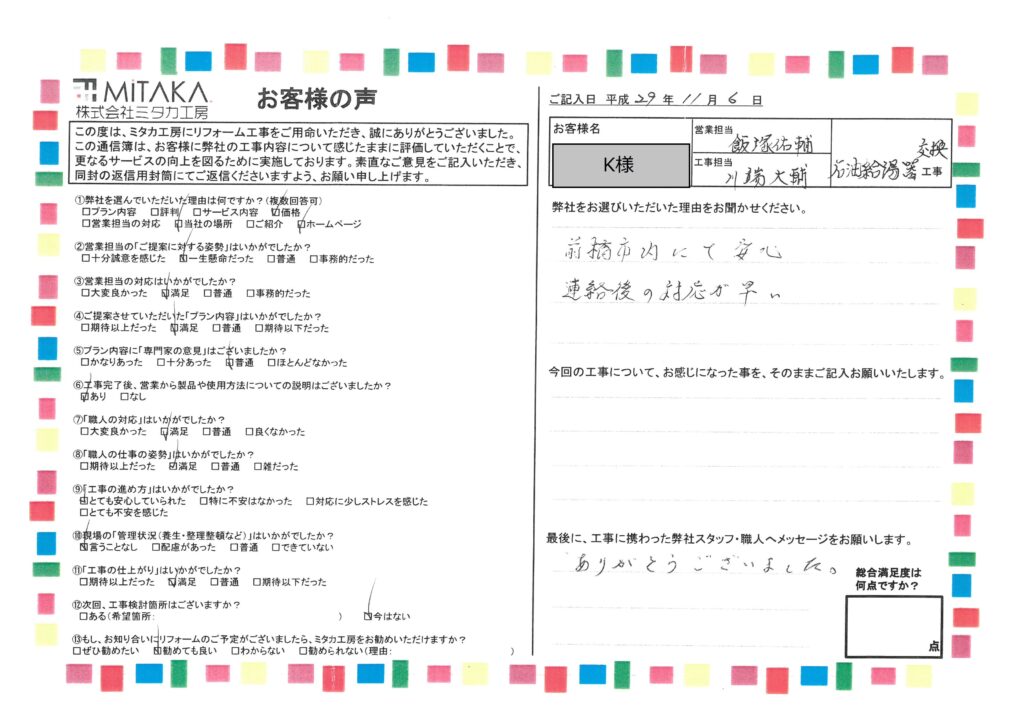 MiTAKA
株式会社ミタカ工房
お客様の声
この度は、ミタカ工房にリフォーム工事をご用命いただき、誠にありがとうございました。
この通信簿は、お客様に弊社の工事内容について感じたままに評価していただくことで、
更なるサービスの向上を図るために実施しております。素直なご意見をご記入いただき、
同封の返信用封筒にてご返信くださいますよう、お願い申し上げます。
①弊社を選んでいただいた理由は何ですか?(複数回答可)
□プラン内容 □評判 □サービス内容 ☑価格
□営業担当の対応 ☑当社の場所 □ご紹介 ☑ホームページ
②営業担当の「ご提案に対する姿勢」はいかがでしたか?
□十分誠意を感じた ☑一生懸命だった □普通 □事務的だった
③営業担当の対応はいかがでしたか?
□大変良かった ☑満足 □普通 □事務的だった
④ご提案させていただいた「プラン内容」はいかがでしたか?
□期待以上だった ☑満足 □普通 □期待以下だった
⑤プラン内容に「専門家の意見」はございましたか?
□かなりあった □十分あった ☑普通 □ほとんどなかった
⑥工事完了後、営業から製品や使用方法についての説明はございましたか?
☑あり □なし
⑦「職人の対応」はいかがでしたか?
□大変良かった ☑満足 □普通 □良くなかった
⑧「職人の仕事の姿勢」はいかがでしたか?
□期待以上だった ☑満足 □普通 □雑だった
⑨「工事の進め方」はいかがでしたか?
☑とても安心していられた □特に不安はなかった □対応に少しストレスを感じた
□とても不安を感じた
⑩現場の「管理状況(養生・整理整頓など)」はいかがでしたか?
☑言うことなし □配慮があった □普通 □できていない
⑪「工事の仕上がり」はいかがでしたか?
□期待以上だった ☑満足 □普通 □期待以下だった
⑫次回、工事検討箇所はございますか?
□ある(希望箇所: ) ☑今はない
⑬もし、お知り合いにリフォームのご予定がございましたら、ミタカ工房をお勧めいただけますか?
□ぜひ勧めたい ☑勧めても良い □わからない □勧められない(理由: )
ご記入日 平成 29 年 11 月 6 日
お客様名
K様
営業担当 飯塚佑輔
工事担当 川端大輔
石油給湯器 交換 工事
弊社をお選びいただいた理由をお聞かせください。
前橋市内にて安心
連絡後の対応が早い
今回の工事について、お感じになった事を、そのままご記入お願いいたします。
最後に、工事に携わった弊社スタッフ・職人へメッセージをお願いします。
ありがとうございました。
総合満足度は
何点ですか?
点